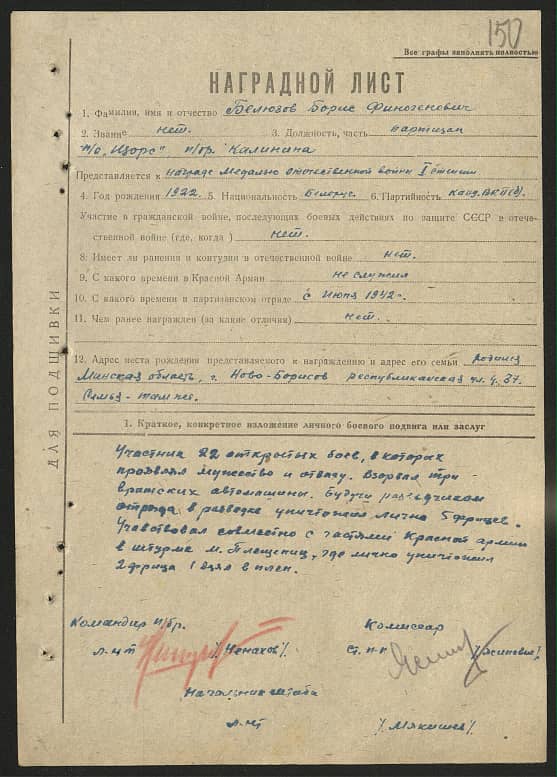 150
Все графы заполнять полностью
НАГРАДНОЙ ЛИСТ
1. Фамилия, имя и отчество Белюзов Борис Финогенович
2. Звание нет. 3. Должность, часть партизан
п/о „Щорс" п/бр. Калинина
Представляется к награде Медалью отечественной войны I степени
4. Год рождения 1922. 5. Национальность Белорус. 6. Партийность канд. ВКП(б).
Участие в гражданской войне, последующих боевых действиях по защите СССР в отече-
ственной войне (где, когда) нет.
8. Имеет ли ранения и контузии в отечественной войне нет.
9. С какого времени в Красной Армии не служил
10. С какого времени в партизанском отряде с Июня 1942 г.
11. Чем ранее награжден (за какие отличия) нет.
12. Адрес места рождения представляемого к награждению и адрес его семьи родился
Минская область, г. Ново-Борисов республиканская ул. д. 37.
Семья - там же.
ДЛЯ ПОДШИВКИ
1. Краткое, конкретное изложение личного боевого подвига или заслуг
Участник 22 открытых боев, в которых
проявлял мужество и отвагу. Взорвал три
вражеских автомашины. Будучи разведчиком
отряда в разведке уничтожил лично 5 фрицев.
Учавствовал совместно с частями Красной армии
в штурме м. Плещениц, где лично уничтожил
2 фрица 1 взял в плен.
Командир п/бр. Комиссар
л-нт /Ненахов/. ст. п-п /Ясинович/
Начальник штаба
л-нт /Мякишев/.